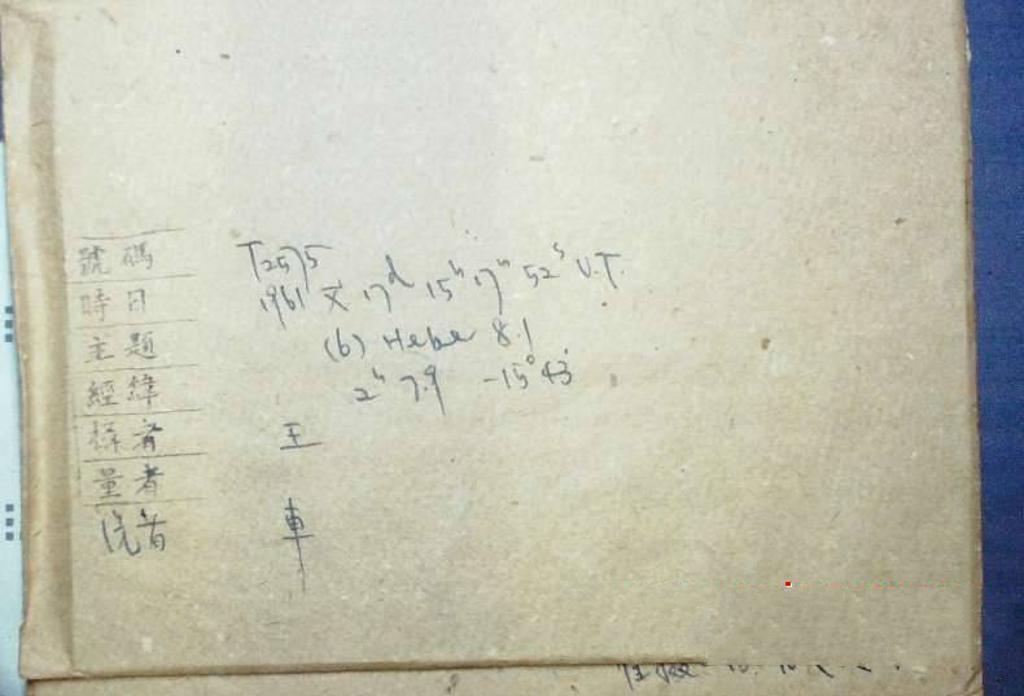 號碼 T2575
時日 1961 X 17d 15h 17m 52s U.T.
主題 (6) Hebe 8.1
經緯 2h 7.9 -15°43'
攝者 王
量者
洗者 車